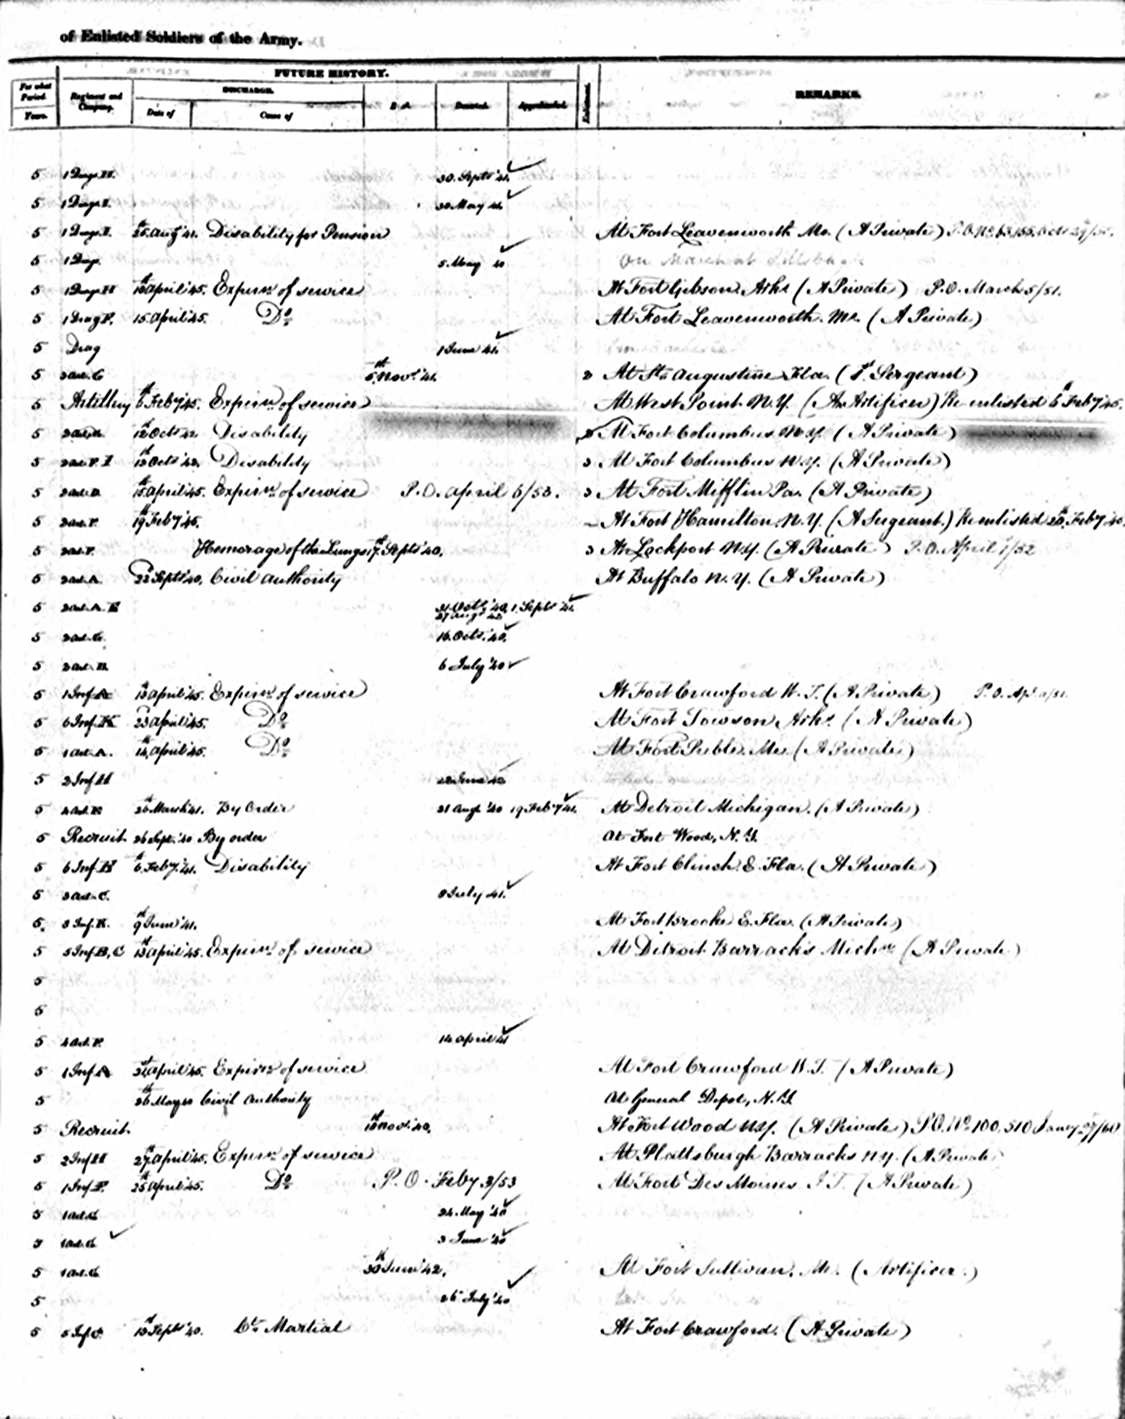 of Enlisted Soldiers of the Army.
FUTURE HISTORY.
For what Period. Regiment and Company. DISCHARGE. REMARKS.
Years. Date of Cause of Deserted. Apprehended. Enlistment.
5 1 Drag. H. 30. Septr '41.
5 1 Drag. I. 30 May 41
5 1 Drag. I. 25. Augt 41. Disability for Pension At Fort Leavenworth Mo. (A Private)
5 1 Drag. 5. May 41 On March at
5 1 Drag. H 18th april '45. Expirn of service At Fort Gibson Arks (A Private) P.O. March 5/51.
5 1 Drag F. 15. April '45. Do At Fort Leavenworth Mo. (A Private)
5 Drag 1 June '41.
5 2 art. C 5th Novr '41. 2 At St. Augustine Fla. (1st Sergeant)
5 Artillery 5th Feby '45. Expirn of service At West Point N.Y. (An Artificer) Re enlisted 6th Feby '45.
5 2 art. 12th Octr 42 Disability At Fort Columbus N.Y. (A Private)
5 2 art. F. I 12th Octr '42. Disability 3 At Fort Columbus N.Y. (A Private)
5 2 art. D. 15. april '45. Expirn of service P.O. april 6/53. 3 At Fort Mifflin Pa. (A Private)
5 2 art. F. 19th Feby '45. At Fort Hamilton N.Y. (A Sergeant.) Re enlisted 20th Feby '45.
5 2 art. F. Hemorage of the Lungs 17th Septr '40. 3 At Lockport N.Y. (A Private) P.O. April 1/52
5 2 art. A. 22d Septr '40. Civil authority At Buffalo N.Y. (A Private)
5 2 art. A. E 31. Octr '40, 1. Septr '41.
27 Augt 42
5 2 art. G. 16. Octr. '40.
5 2 art. B. 6 July '40
5 1 Inf. A 13th april '45. Expirn of service At Fort Crawford W.T. (A Private)
5 6 Inf. K 23d april '45. Do At Fort Towson Arks. (A Private)
5 1 art. A. 14th april '45. Do At Fort Preble. Me. (A Private)
5 2 Inf. H 22 June 40
5 4 art. E 26th March 41. By Order 21 Augt '40 19 Feby '41. At Detroit Michigan. (A Private)
5 Recruit. 26 Sept. '40 By order At Fort Wood, N.Y.
5 6 Inf. H 6. Feby '41. Disability At Fort Clinch. E. Fla. (A Private)
5 3 art. C. 8 July 41.
5. 8 Inf. K. 9th June '41. At Fort Brooke E. Fla. (A Private)
5 5 Inf. B, C 13th april '45. Expirn of service At Detroit Barracks Michn (A Private)
5
5
5 4 art. F. 14 april '41
5 1 Inf. A 21st april '45. Expirn of service At Fort Crawford W.T. (A Private)
5 26th May Civil Authority At General Depot, N.Y.
5 Recruit. 18th Novr '40. At Fort Wood N.Y. (A Private) P.O. No. 100,510 Jany 27/60
5 2 Inf. H 27th april '45. Expirn of service At Plattsburgh Barracks N.Y. (A Private
5 1 Inf. F. 25th april '45. Do P.O. Feby 3/53 At Fort Des Moines I.T. (A Private)
5 1 art. G 24. May '40
5 1 art. G. 3 June '40
5 1 art. G 30th June '42. At Fort Sullivan. Me. (Artificer.)
5 26 July '40
5 5 Inf. 15th Septr '40. Ct Martial At Fort Crawford. (A Private)